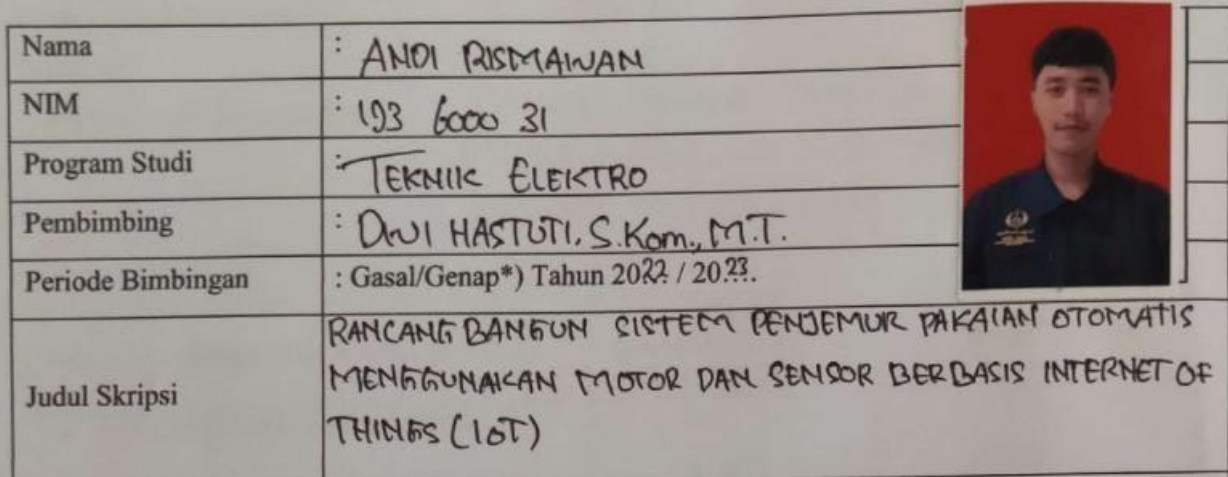 Nama : ANDI RISMAWAN
NIM : 193 6000 31
Program Studi : TEKNIK ELEKTRO
Pembimbing : DWI HASTUTI, S.Kom., M.T.
Periode Bimbingan : Gasal/Genap*) Tahun 2022 / 2023.
Judul Skripsi
RANCANG BANGUN SISTEM PENJEMUR PAKAIAN OTOMATIS
MENGGUNAKAN MOTOR DAN SENSOR BERBASIS INTERNET OF
THINGS (IOT)